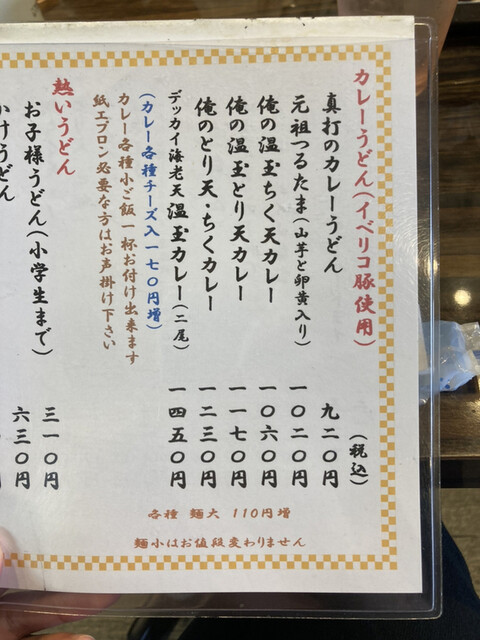 カレーうどん(イベリコ豚使用) (税込)
真打のカレーうどん 九二〇円
元祖つるたま(山芋と卵黄入り) 一〇二〇円
俺の温玉ちく天カレー 一〇六〇円
俺の温玉とり天カレー 一一七〇円
俺のとり天・ちくカレー 一二三〇円
デッカイ海老天温玉カレー(二尾) 一四五〇円
(カレー各種チーズ入一七〇円増)
カレー各種小ご飯一杯お付け出来ます
紙エプロン必要な方はお声掛け下さい
熱いうどん
お子様うどん(小学生まで) 三一〇円
かけうどん 六三〇円
各種 麺大 110円増
麺小はお値段変わりません